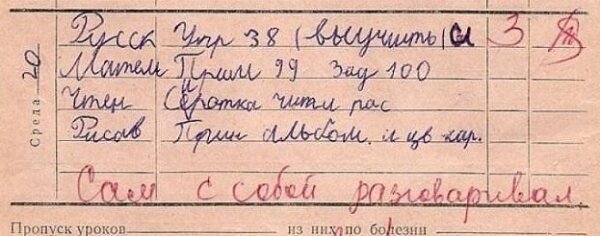 Среда 20
Русск Упр 38 (выучить) и 3
Матем Прим 99 Зад 100
Чтен Сиротка чит рас
Рисов Прин альбом. и цв кар.
Сам с собой разговаривал.
Пропуск уроков из них по болезни